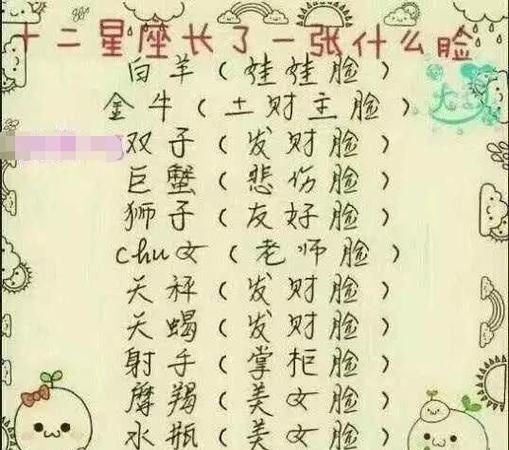 十二星座长了一张什么脸
白羊（娃娃脸）
金牛（土财主脸）
双子（发财脸）
巨蟹（悲伤脸）
狮子（友好脸）
chu女（老师脸）
天秤（发财脸）
天蝎（发财脸）
射手（掌柜脸）
摩羯（美女脸）
水瓶（美女脸）